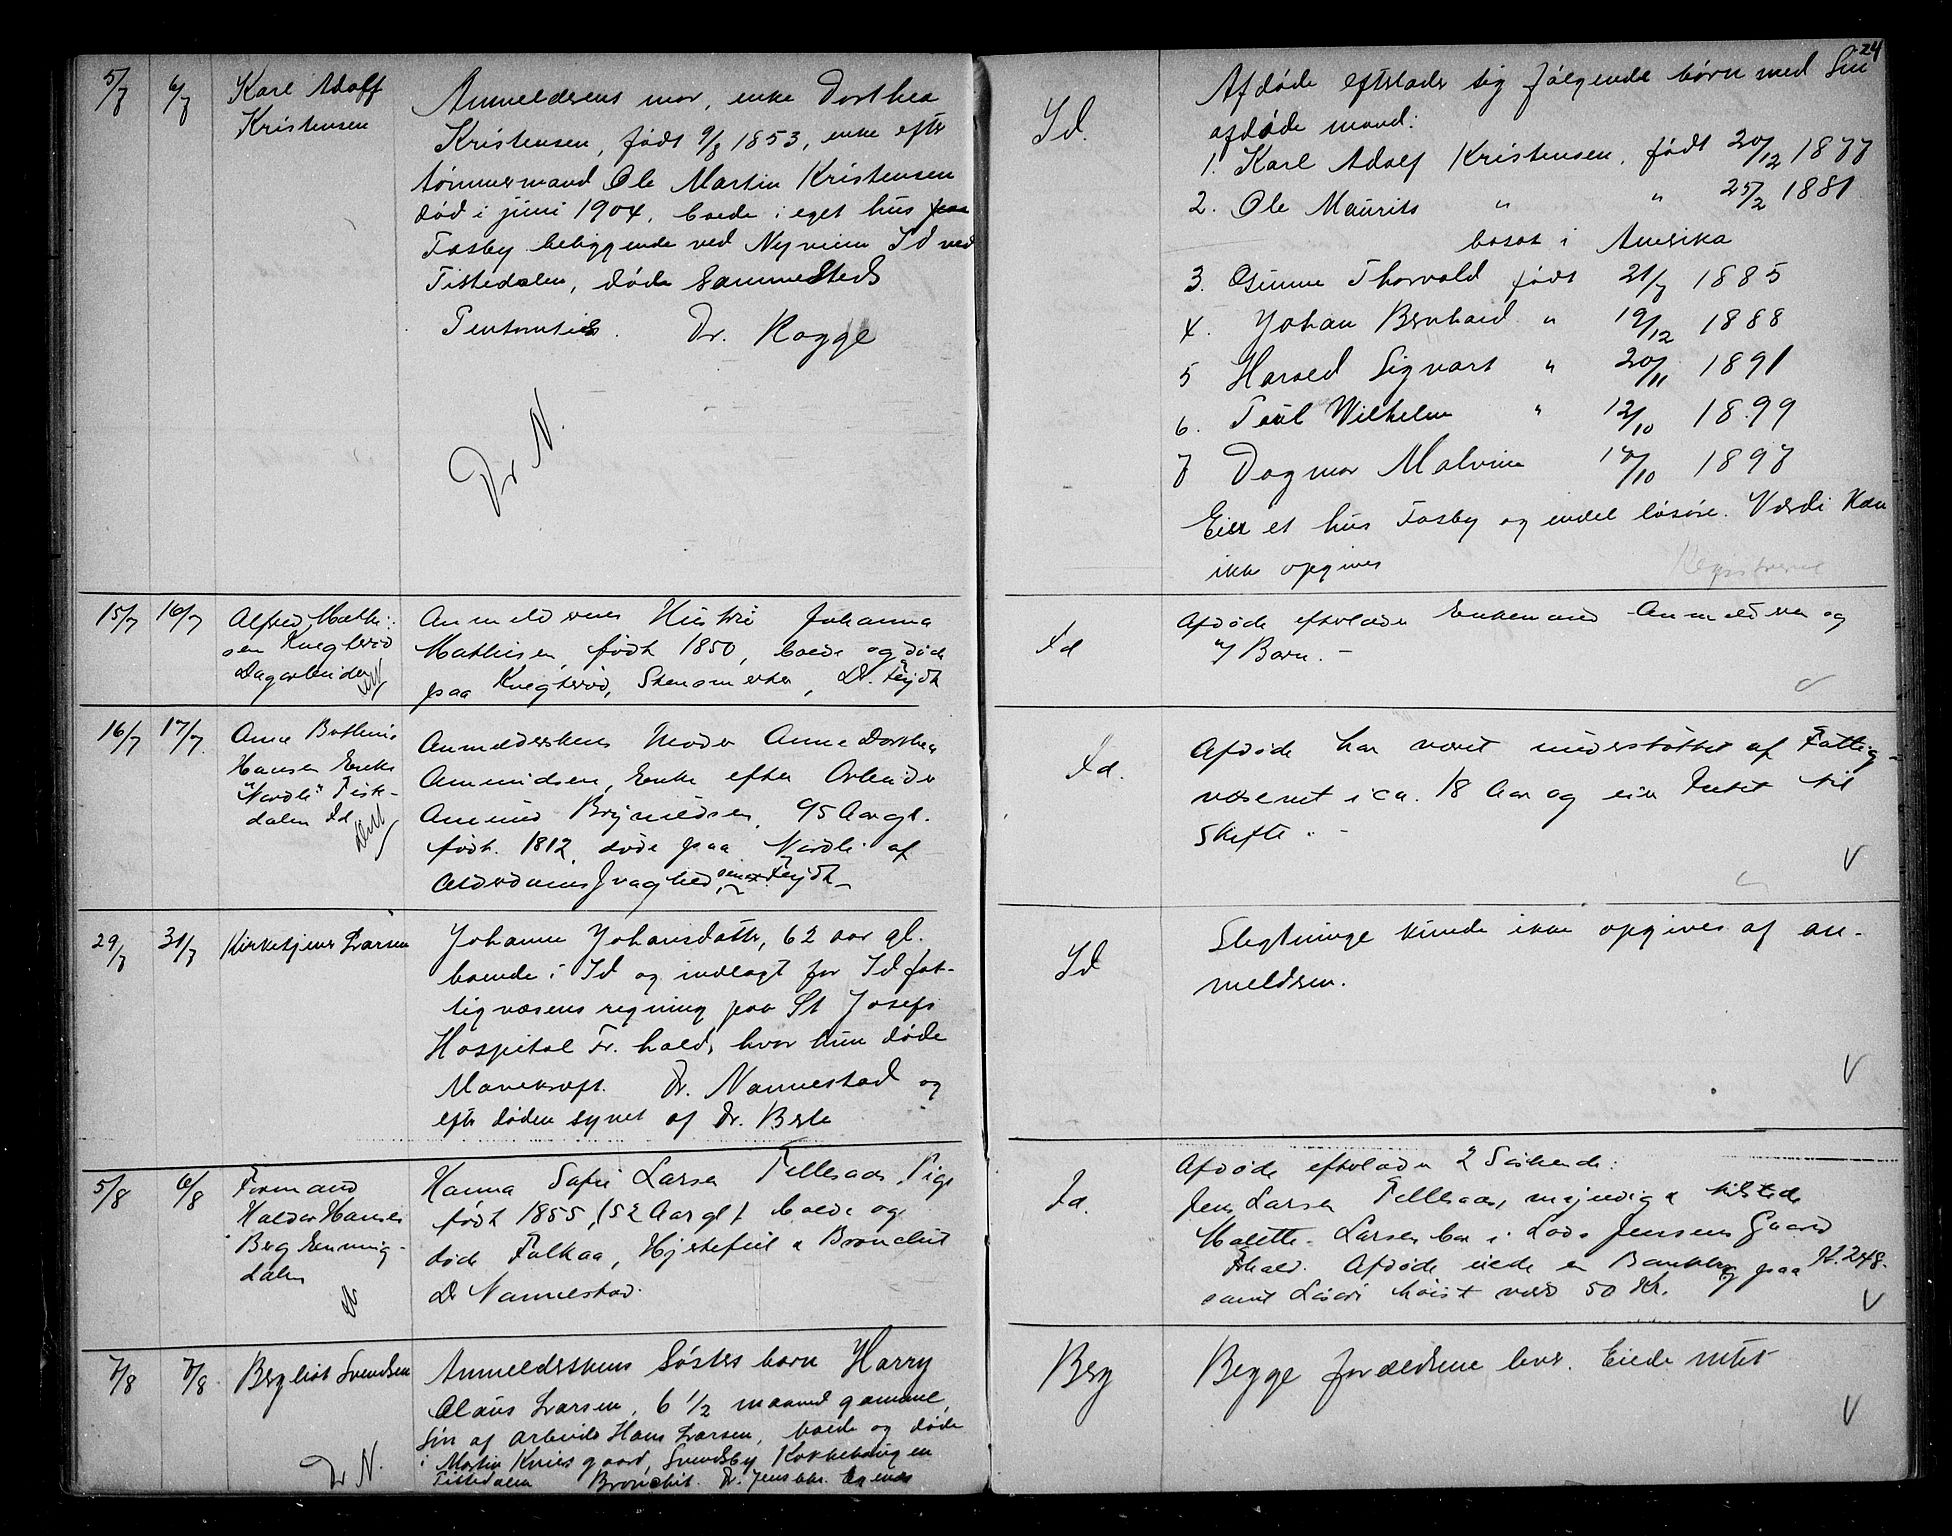 24
5/7 6/7 Karl Adolf
Kristensen
Anmelderens mor, enke Dorthea
Kristensen, født 9/8 1853, enke efter
tømmermand Ole Martin Kristensen
død i juni 1904, boede i eget hus paa
Tosby beliggende ved Nyveien Id ved
Tistedalen, døde sammesteds
Dr. Rogge
Dr N.
Id.
Afdøde efterlader sig følgende børn med sin
afdøde mand:
1. Karl Adolf Kristensen, født 20/12 1877
2. Ole Maurits " " 25/2 1881
bosat i Amerika
3. Gunne Thorvald født 21/7 1885
4. Johan Bernhard " 19/12 1888
5 Harald Sigvart " 20/11 1891
6. Paul Wilhelm " 12/10 1899
7 Dagmar Malvine 17/10 1897
Eier et hus Tosby og endel løsøre. Værdi kan
ikke opgives
Registreret
15/7 16/7 Alfred Mathi-
sen Knegterød
Dagarbeider
Anmelderens Hustru Johanna
Mathisen, født 1850, boede og døde
paa Knegterød, Stensmerter, Dr. Feydt
Id
Afdøde efterlader Enkemand Anmelderen og
7 Barn. -
16/7 17/7. Anne Bothine
Hansen Enke
"Nordli" Tiste-
dalen Id
Anmelderskens Moder Anne Dorthea
Ammundsen, Enke efter Arbeider
Ammund Brynildsen, 95 Aar gl.
født. 1812, døde paa Nordli af
Alderdomssvaghed, Feydt
Id.
Afdøde har været understøttet af Fattig-
væsenet i ca. 18 Aar og eier Intet til
Skifte. -
29/7 31/7 Kirketjener Larsen
Johanne Johansdatter, 62 aar gl.
boende i Id og indlagt for Id fat-
tigvæsens regning paa St Josefs
Hospital Fr. hald, hvor hun døde
Mavekræft. Dr. Nannestad og
efter døden synet af Dr. Berle
Id
Slegtninge kunde ikke opgives af an-
melderen.
5/8 6/8 Formand
Halvor Hansen
Berg Enning-
dalen
Hanna Sofie Larsen Tellesaas, Pige
født 1855, (52 Aar gl) boede og
døde Folkaa, Hjertefeil & Bronchit
Dr Nannestad.
Id.
Afdøde efterlader 2 Søskende:
Jens Larsen Tellesaas, myndig & tilstede
Malette Larsen bor i Lods Jensens Gaard
Fhald. Afdøde eiede en Bankbog paa Kr. 248.
samt Løsøre høist værd 50 Kr.
7/8 7/8 Bergliot Svendsen
Dr N.
Anmelderskens søsters barn Harry
Claus Larsen, 6 1/2 maaned gammel,
søn af arbeider Hans Larsen, boede og døde
i Martin Kniis gaard, Svendsby Kokkehaugen
Tistedalen Bronchit. Dr. Jens
Berg
Begge forældrene lever. Eiede intet